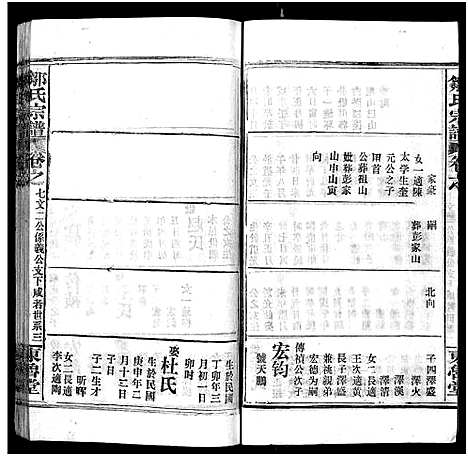 鄒氏宗譜
卷之
家豪
女一適陳
太學生奎
元公之子
用首
公葬祖山
妣葬彭家
山申山寅
向
嗣
葬彭家山
北向
子四澤盛
澤火
澤漢
澤清
女二長適黄
王次適
長子澤盛
兼祧親弟
宏德为嗣
宏鈞
傳禎公次子
號天鵬
東魯堂
鄒氏宗譜
卷之
七文二公係義公支下咸若世系
三
東魯堂
生於民國
丁卯年三
月初一日
卯時
娶杜氏
生於民國
庚申年二
月十三日
子二生才
昕暉
女二長適
李次適陶